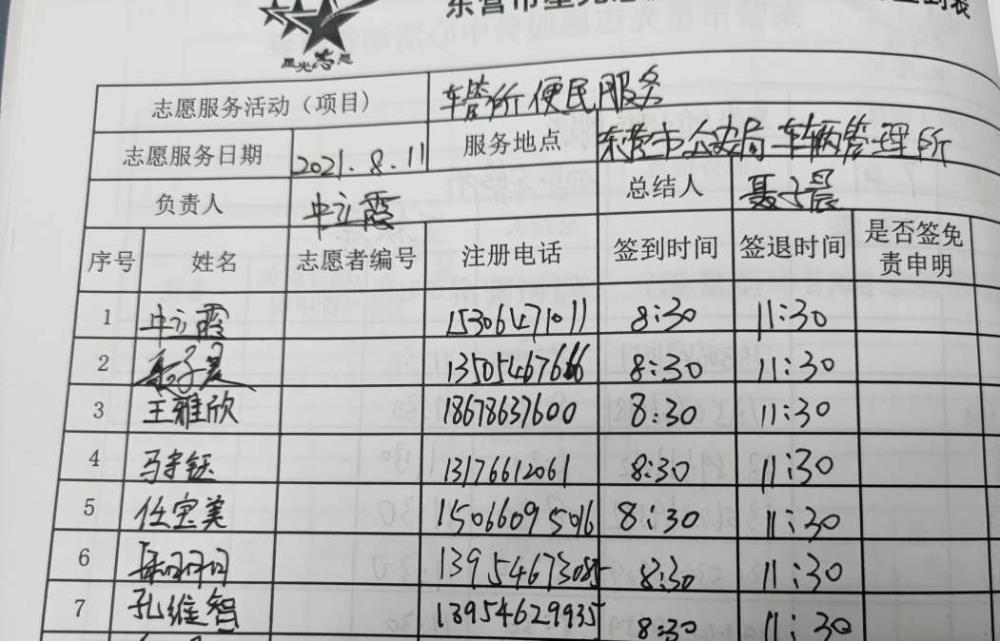 星光志愿
志愿服务活动（项目） 车管所便民服务
志愿服务日期 2021.8.11 服务地点 东营市公安局车辆管理所
负责人 申立霞 总结人 聂子晨
序号 姓名 志愿者编号 注册电话 签到时间 签退时间 是否签免
责申明
1 申立霞 15306471011 8:30 11:30
2 聂子晨 13505467666 8:30 11:30
3 王雅欣 18678637600 8:30 11:30
4 马宇钰 13176612061 8:30 11:30
5 任宝美 15066095016 8:30 11:30
6 13954673085 8:30 11:30
7 孔维智 13954629935 8:30 11:30